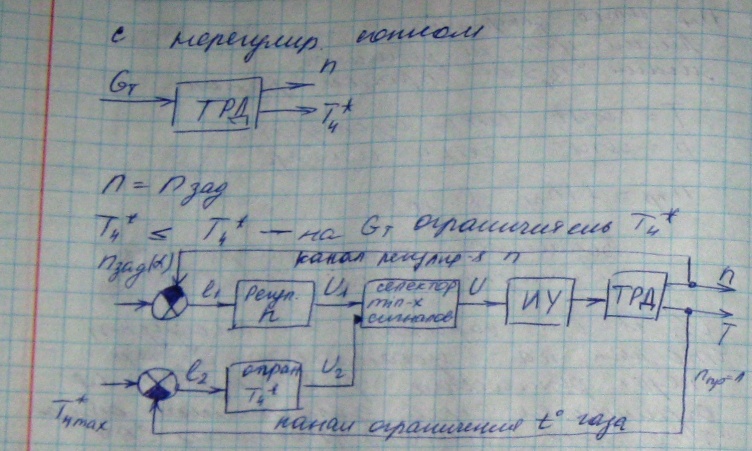 с нерегулир. соплом
n
Gт
ТРД
T₄*
n = nзад
T₄* ≤ T₄* — на Gт ограничитель T₄*
канал регулир-я n
nзад(α)
l₁
Регул.
n
U₁
селектор
min-х
сигналов
U
ИУ
ТРД
n
T
l₂
огран
T₄*
U₂
nпр=1
T₄max*
канал ограничения t° газа